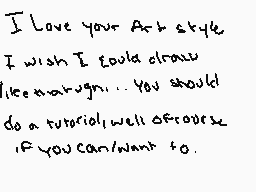 I Love your Art style
I wish I could draw
like that ugn... You should
do a tutorial, well ofcourse
if you can/want to.